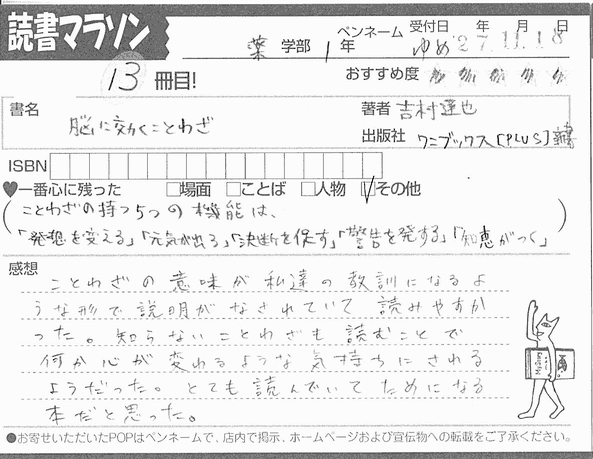 読書マラソン
薬 学部 1 年
ペンネーム ゆめ
受付日 '27年11月18日
13 冊目!
おすすめ度
書名 脳に効くことわざ
著者 吉村達也
出版社 ワニブックス[PLUS]新書
ISBN
♥一番心に残った □場面 □ことば □人物 ☑その他
(ことわざの持つ5つの機能は、
「発想を変える」「元気が出る」「決断を促す」「警告を発する」「知恵がつく」)
感想
ことわざの意味が私達の教訓になるよ
うな形で説明がなされていて読みやすか
った。知らないことわざも読むことで
何か心が変わるような気持ちにされる
ようだった。とても読んでいてためになる
本だと思った。
●お寄せいただいたPOPはペンネームで、店内で掲示、ホームページおよび宣伝物への転載をご了承ください。